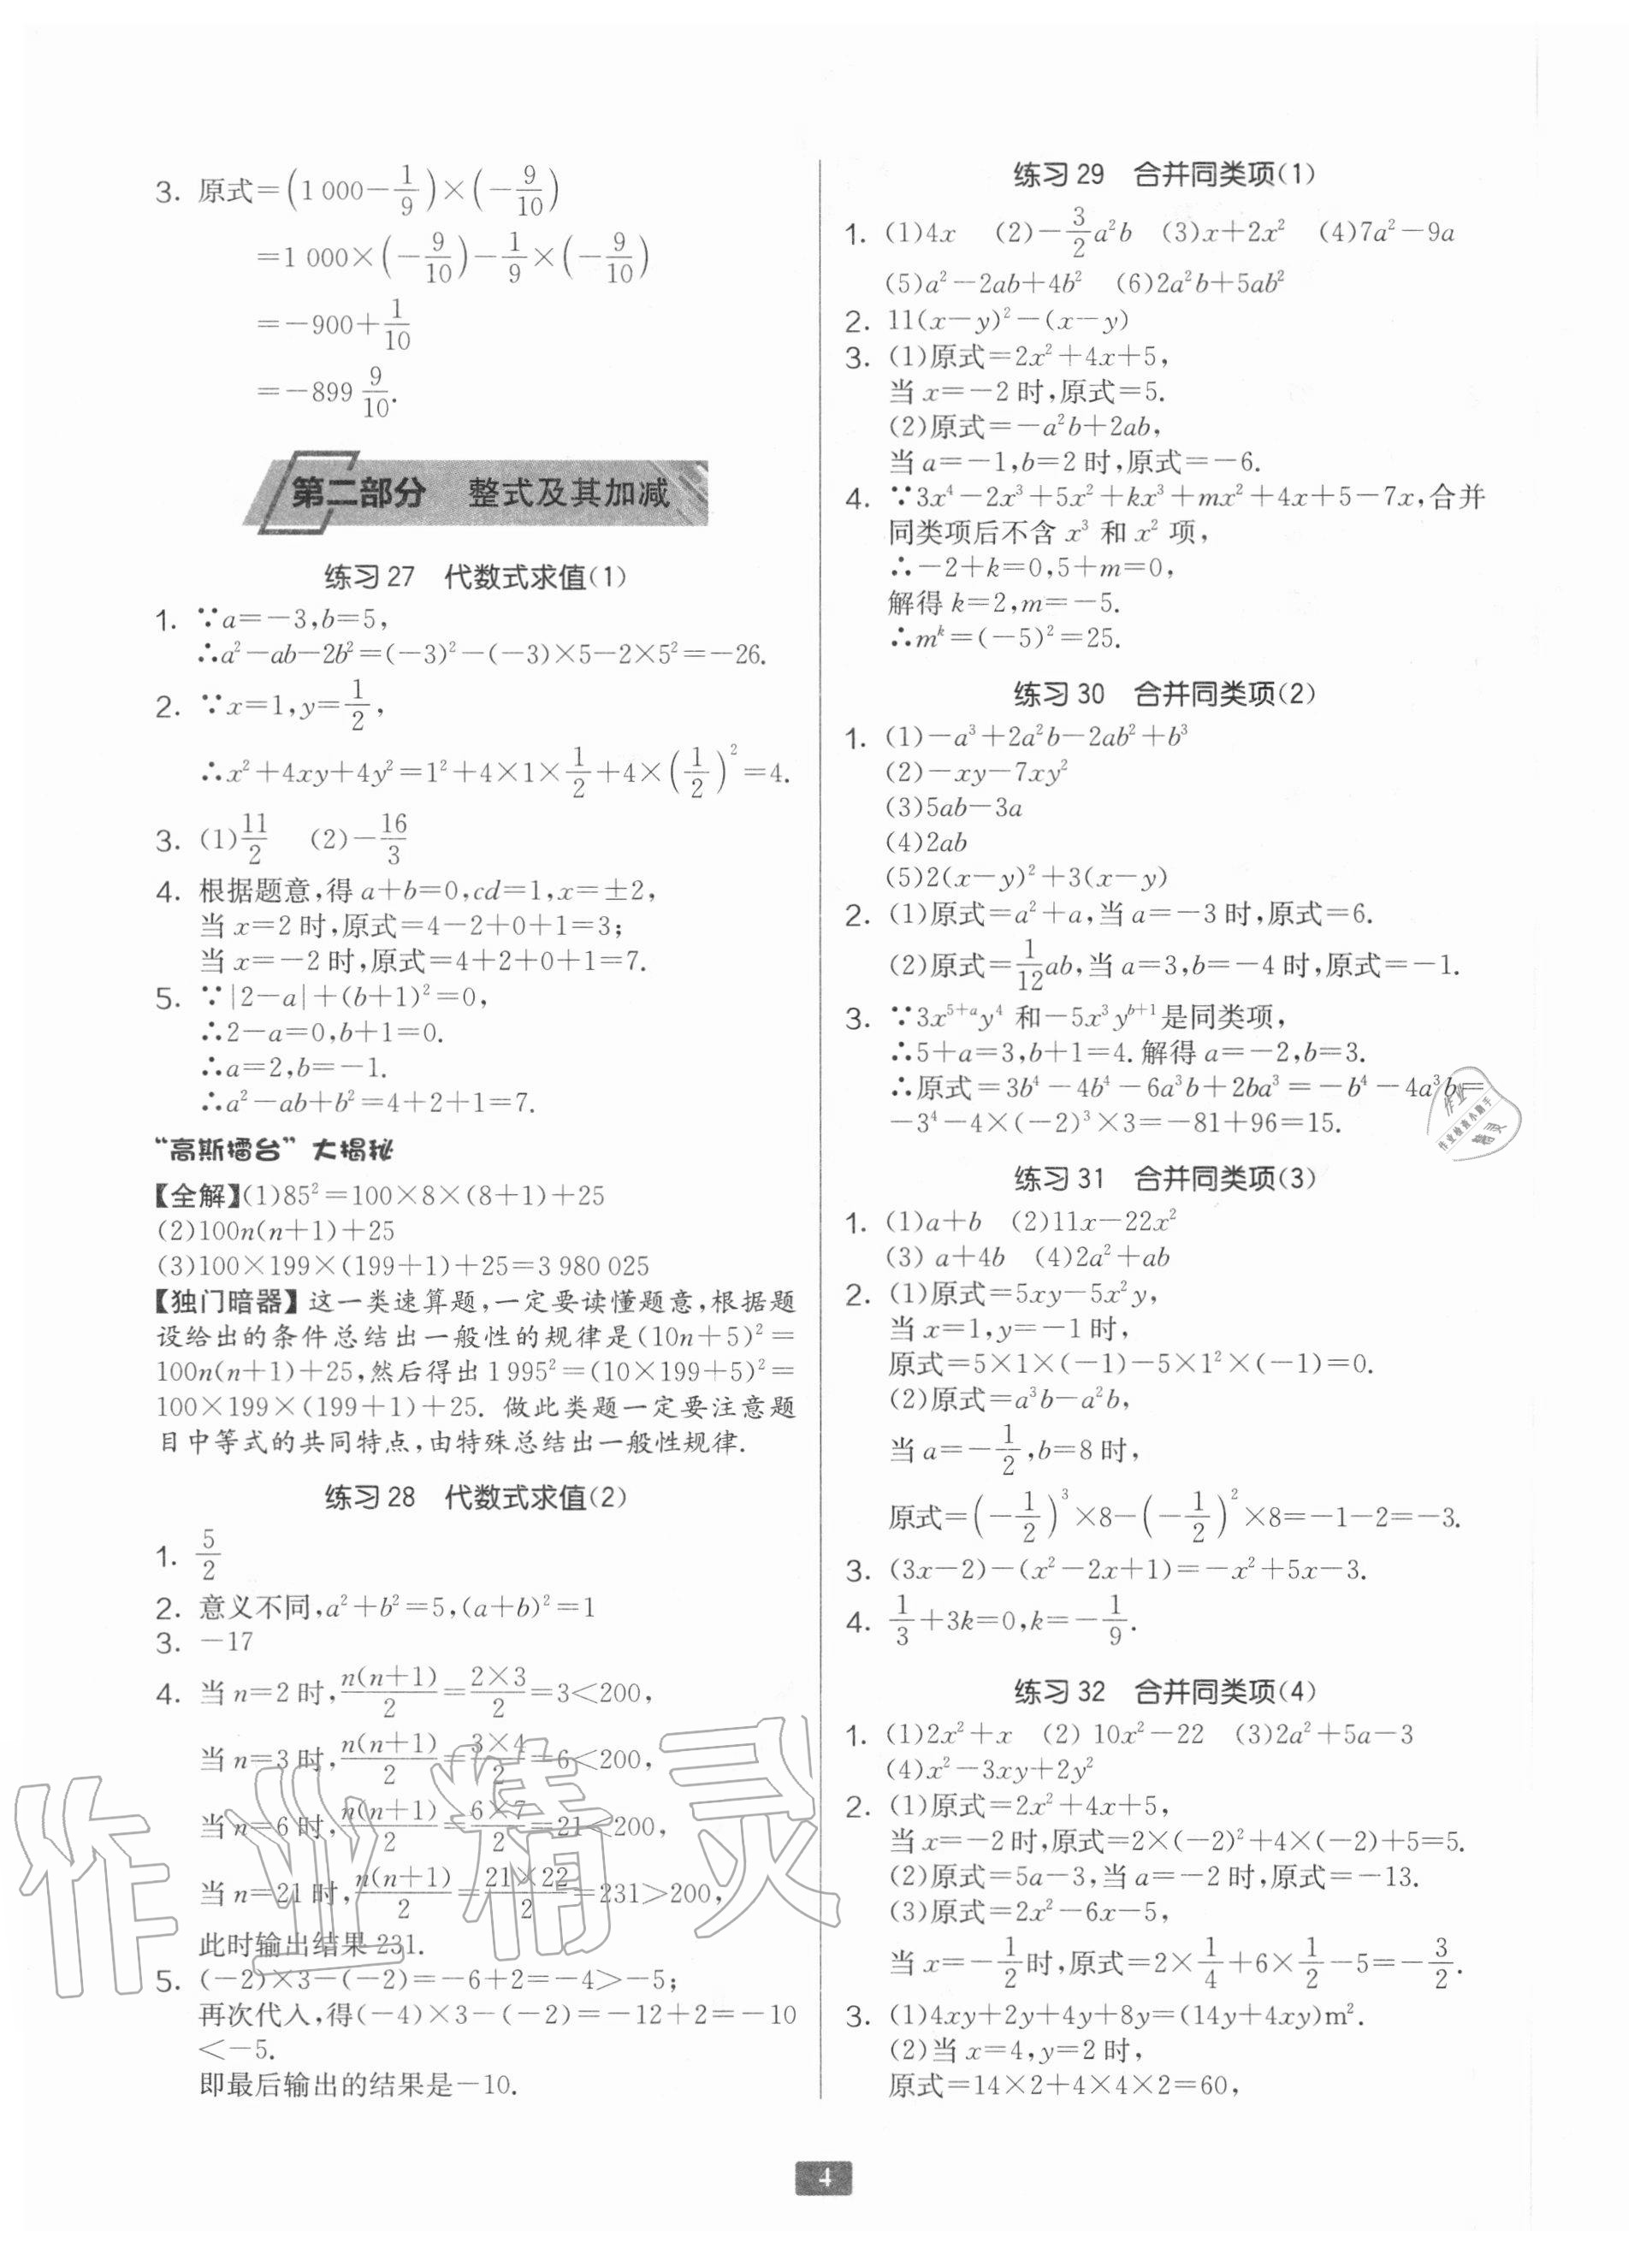 3. 原式=(1 000−1/9)×(−9/10)
=1 000×(−9/10)−1/9×(−9/10)
=−900+1/10
=−899 9/10.
第二部分 整式及其加减
练习 27 代数式求值(1)
1. ∵a=−3,b=5,
∴a²−ab−2b²=(−3)²−(−3)×5−2×5²=−26.
2. ∵x=1,y=1/2,
∴x²+4xy+4y²=1²+4×1×1/2+4×(1/2)²=4.
3. (1)11/2 (2)−16/3
4. 根据题意,得 a+b=0,cd=1,x=±2,
当 x=2 时,原式=4−2+0+1=3;
当 x=−2 时,原式=4+2+0+1=7.
5. ∵|2−a|+(b+1)²=0,
∴2−a=0,b+1=0.
∴a=2,b=−1.
∴a²−ab+b²=4+2+1=7.
“高斯擂台”大揭秘
【全解】(1)85²=100×8×(8+1)+25
(2)100n(n+1)+25
(3)100×199×(199+1)+25=3 980 025
【独门暗器】这一类速算题,一定要读懂题意,根据题
设给出的条件总结出一般性的规律是(10n+5)²=
100n(n+1)+25,然后得出 1 995²=(10×199+5)²=
100×199×(199+1)+25. 做此类题一定要注意题
目中等式的共同特点,由特殊总结出一般性规律.
练习 28 代数式求值(2)
1. 5/2
2. 意义不同,a²+b²=5,(a+b)²=1
3. −17
4. 当 n=2 时,n(n+1)/2=2×3/2=3<200,
当 n=3 时,n(n+1)/2=3×4/2=6<200,
当 n=6 时,n(n+1)/2=6×7/2=21<200,
当 n=21 时,n(n+1)/2=21×22/2=231>200,
此时输出结果 231.
5. (−2)×3−(−2)=−6+2=−4>−5;
再次代入,得(−4)×3−(−2)=−12+2=−10
<−5.
即最后输出的结果是−10.
练习 29 合并同类项(1)
1. (1)4x (2)−3/2a²b (3)x+2x² (4)7a²−9a
(5)a²−2ab+4b² (6)2a²b+5ab²
2. 11(x−y)²−(x−y)
3. (1)原式=2x²+4x+5,
当 x=−2 时,原式=5.
(2)原式=−a²b+2ab,
当 a=−1,b=2 时,原式=−6.
4. ∵3x⁴−2x³+5x²+kx³+mx²+4x+5−7x,合并
同类项后不含 x³ 和 x² 项,
∴−2+k=0,5+m=0,
解得 k=2,m=−5.
∴mᵏ=(−5)²=25.
练习 30 合并同类项(2)
1. (1)−a³+2a²b−2ab²+b³
(2)−xy−7xy²
(3)5ab−3a
(4)2ab
(5)2(x−y)²+3(x−y)
2. (1)原式=a²+a,当 a=−3 时,原式=6.
(2)原式=1/12ab,当 a=3,b=−4 时,原式=−1.
3. ∵3x⁵⁺ᵃy⁴ 和−5x³yᵇ⁺¹是同类项,
∴5+a=3,b+1=4.解得 a=−2,b=3.
∴原式=3b⁴−4b⁴−6a³b+2ba³=−b⁴−4a³b=
−3⁴−4×(−2)³×3=−81+96=15.
练习 31 合并同类项(3)
1. (1)a+b (2)11x−22x²
(3) a+4b (4)2a²+ab
2. (1)原式=5xy−5x²y,
当 x=1,y=−1 时,
原式=5×1×(−1)−5×1²×(−1)=0.
(2)原式=a³b−a²b,
当 a=−1/2,b=8 时,
原式=(−1/2)³×8−(−1/2)²×8=−1−2=−3.
3. (3x−2)−(x²−2x+1)=−x²+5x−3.
4. 1/3+3k=0,k=−1/9.
练习 32 合并同类项(4)
1. (1)2x²+x (2) 10x²−22 (3)2a²+5a−3
(4)x²−3xy+2y²
2. (1)原式=2x²+4x+5,
当 x=−2 时,原式=2×(−2)²+4×(−2)+5=5.
(2)原式=5a−3,当 a=−2 时,原式=−13.
(3)原式=2x²−6x−5,
当 x=−1/2时,原式=2×1/4+6×1/2−5=−3/2.
3. (1)4xy+2y+4y+8y=(14y+4xy)m².
(2)当 x=4,y=2 时,
原式=14×2+4×4×2=60,
4
作业精灵
作业
作业检查小助手
精灵